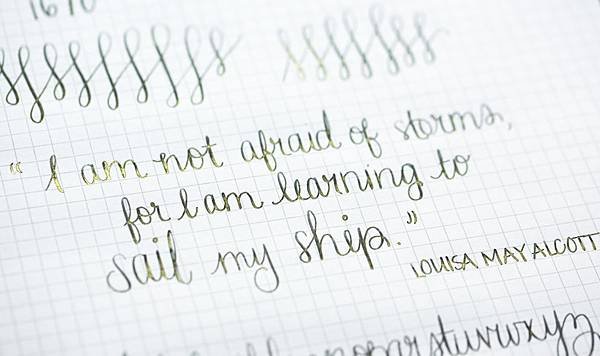 1670
"I am not afraid of storms,
for I am learning to
sail my ship."
LOUISA MAY ALCOTT
nopqrstuvwxyz